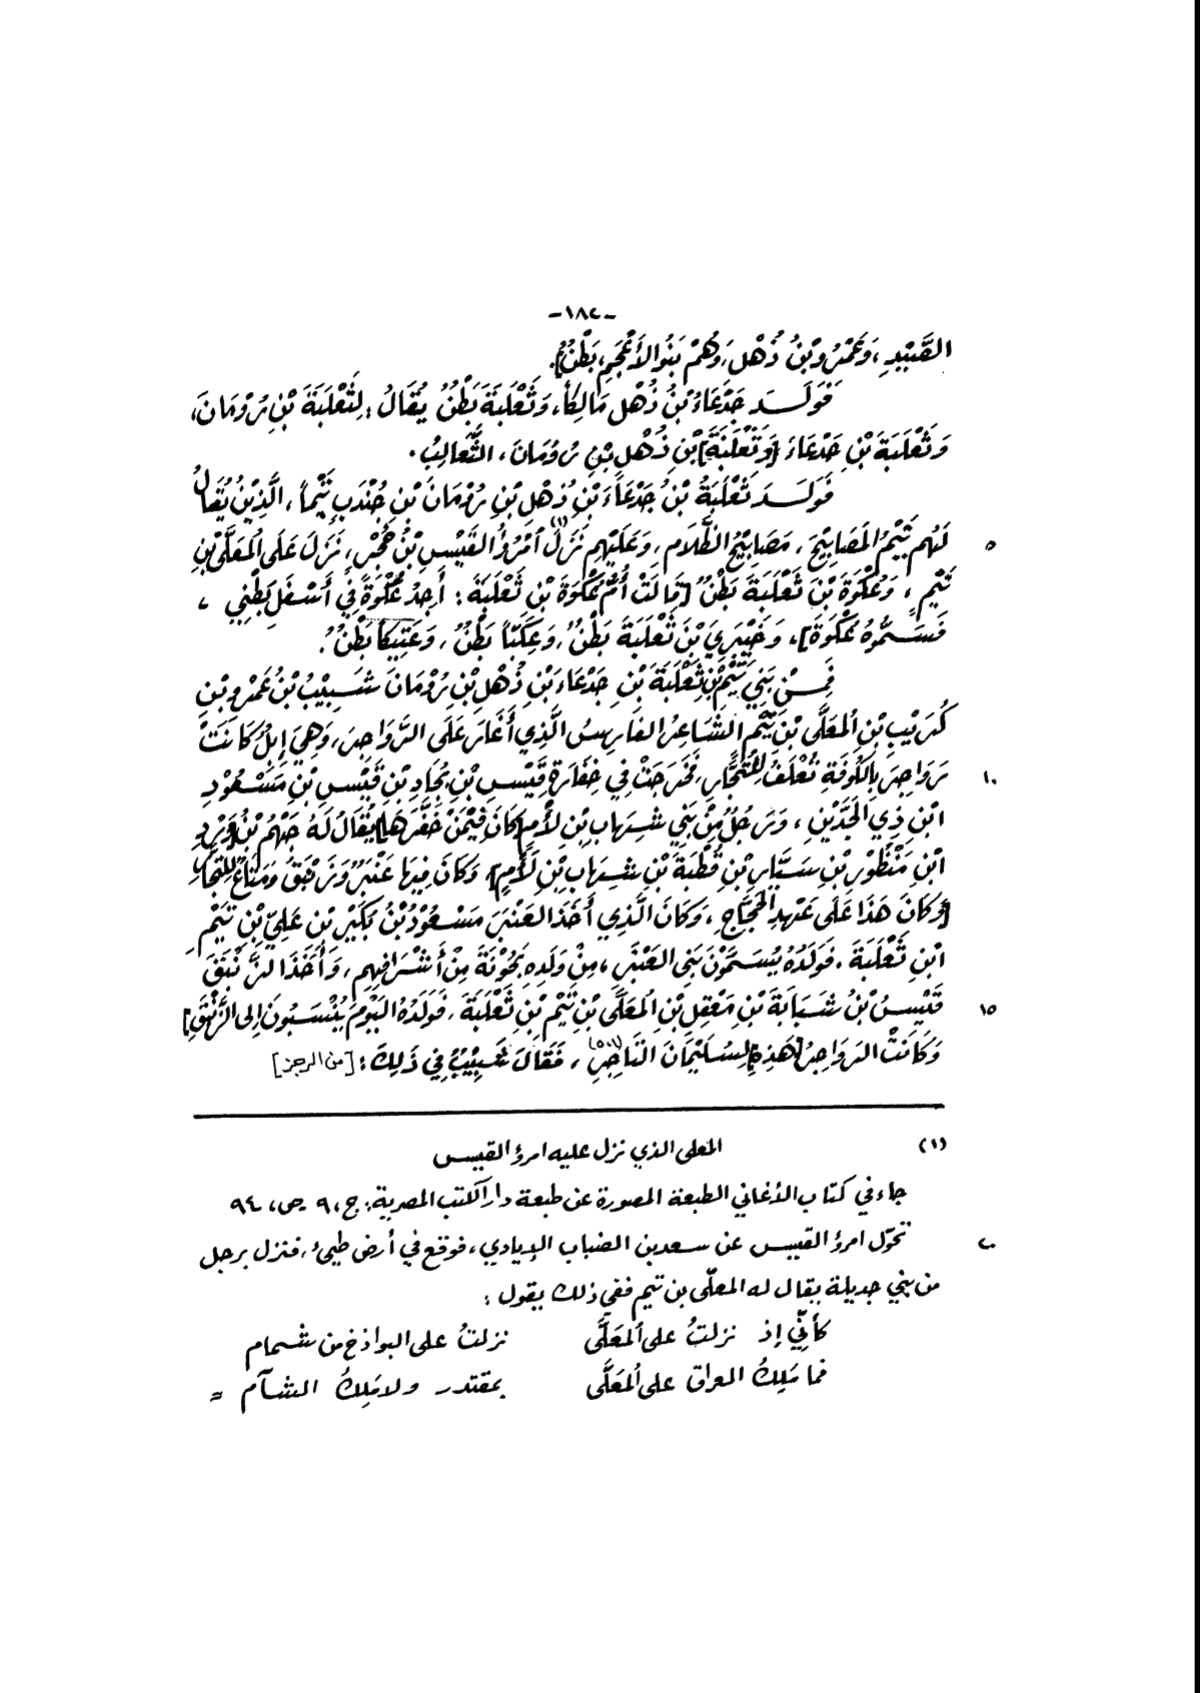 -١٨٢-
الصَّيِّدِ، وَعَمْرُو بْنُ ذُهْلٍ، وَهُمْ بَنُو الأَعْجَمِ، بَطْنٌ].
فَوَلَدَ جَدْعَاءُ بْنُ ذُهْلٍ مَالِكاً، وَثَعْلَبَةَ بَطْنٌ يُقَالُ: لِثَعْلَبَةَ بْنِ رُوْمَانَ،
وَثَعْلَبَةَ بْنِ جَدْعَاءَ [وَثَعْلَبَةَ] بْنِ ذُهْلِ بْنِ رُوْمَانَ، الثَّعَالِبُ.
فَوَلَدَ ثَعْلَبَةُ بْنُ جَدْعَاءَ بْنِ ذُهْلِ بْنِ رُوْمَانَ بْنِ جُنْدَبٍ تَيْماً، الَّذِيْنَ يُقَالُ
لَهُم تَيْمُ المَصَابِيْحِ، مَصَابِيْحُ الظَّلَامِ، وَعَلَيْهِم نَزَلَ(١) امْرُؤُ القَيْسِ بْنُ حُجْرٍ، نَزَلَ عَلَى المُعَلَّى بْنِ ٥
تَيْمٍ، وَعُكْوَةَ بْنَ ثَعْلَبَةَ بَطْنٌ [قَالَتْ أُمُّ عُكْوَةَ بْنِ ثَعْلَبَةَ: أَجِدُ عُكْوَةً فِي أَسْفَلِ بَطْنِي،
فَسَمُّوهُ عُكْوَةَ]، وَخَيْبَرِيَّ بْنَ ثَعْلَبَةَ بَطْنٌ، وَعِكَبّاً بَطْنٌ، وَعَتِيْكاً بَطْنٌ.
فَمِنْ بَنِي تَيْمِ بْنِ ثَعْلَبَةَ بْنِ جَدْعَاءَ بْنِ ذُهْلِ بْنِ رُوْمَانَ شَبِيْبُ بْنُ عَمْرِو بْنِ
كُرَيْبِ بْنِ المُعَلَّى بْنِ تَيْمٍ الشَّاعِرُ الفَارِسُ الَّذِي أَغَارَ عَلَى الرَّوَاجِزِ، وَهِيَ إِبِلٌ كَانَتْ
رَوَاجِزَ بِالكُوفَةِ تُعْلَفُ لِلتُّجَّارِ، فَخَرَجَتْ فِي خَفَارَةِ قَيْسِ بْنِ بُجَادِ بْنِ قَيْسِ بْنِ مَسْعُوْدِ ١٠
ابْنِ ذِي الجَدَّيْنِ، وَرَجُلٌ مِنْ بَنِي شِهَابِ بْنِ لَأْمٍ [كَانَ فِيْمَنْ خَفَّرَهَا] يُقَالُ لَهُ جَهْمُ بْنُ [وِرْدِ
ابْنِ مَنْظُوْرِ بْنِ سَيَّارِ بْنِ قُطْبَةَ بْنِ شِهَابِ بْنِ لَأْمٍ]، وَكَانَ فِيهَا عَنْبَرٌ وَزَنْبَقٌ وَمَتَاعٌ لِلتُّجَّارِ،
[وَكَانَ هَذَا عَلَى عَهْدِ الحَجَّاجِ، وَكَانَ الَّذِي أَخَذَ العَنْبَرَ مَسْعُوْدُ بْنُ بُكَيْرِ بْنِ عَلِيِّ بْنِ تَيْمِ
ابْنِ ثَعْلَبَةَ، فَوَلَدُهُ يُسَمَّوْنَ بَنِي العَنْبَرِ، مِنْ وَلَدِهِ بَحْوَنَةَ مِنْ أَشْرَافِهِم، وَأَخَذَ الزَّنْبَقَ
قَيْسُ بْنُ شَبَابَةَ بْنِ مَعْقِلِ بْنِ المُعَلَّى بْنِ تَيْمِ بْنِ ثَعْلَبَةَ، فَوَلَدُهُ اليَوْمَ يُنْسَبُونَ إِلى الزَّنْبَقِ] ١٥
وَكَانَتْ الرَّوَاجِزُ [هَذِهِ] لِسُلَيْمَانَ التَّاجِرِ، فَقَالَ شَبِيْبُ فِي ذَلِكَ: [من الرجز]
(١) المعلى الذي نزل عليه امرؤ القيس
جاء في كتاب الأغاني الطبعة المصورة عن طبعة دار الكتب المصرية: ج، ٩ ص، ٩٤
تحوّل امرؤ القيس عن سعد بن الضباب الإيادي، فوقع في أرض طيئ، فنزل برجل ٢٠
من بني جديلة يقال له المعلّى بن تيم ففي ذلك يقول:
كأنّي إذ نزلتُ على المعَلَّى نزلتُ على البواذخ من شمام
فما مَلِكُ العراق على المعَلَّى بمقتدر ولا مَلِكُ الشآم =